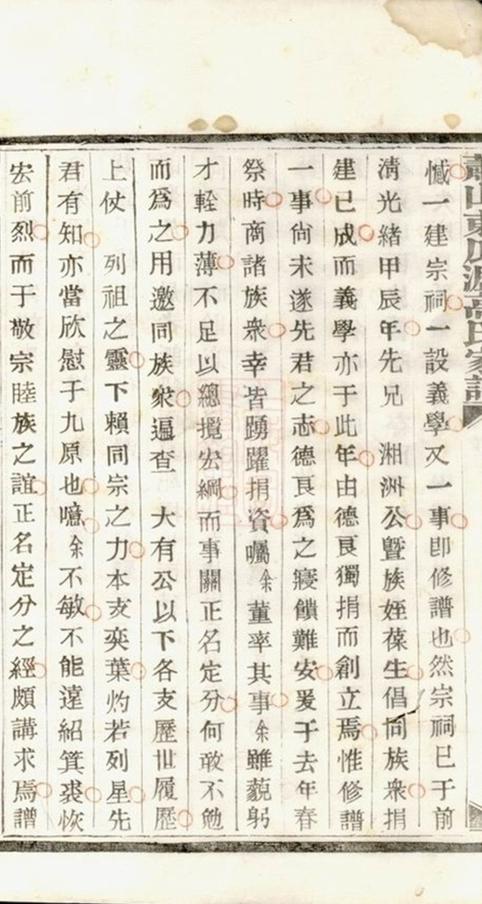 憾一建宗祠一設義學又一事即修譜也然宗祠已于前
清光緒甲辰年先兄 湘洲公暨族姪葆生倡同族衆捐
建已成而義學亦于此年由德艮獨捐而創立焉惟修譜
一事尙未遂先君之志德艮爲之寢饋難安爰于去年春
祭時商諸族衆幸皆踴躍捐資囑余董率其事余雖藐躬
才輕力薄不足以總攬宏綱而事關正名定分何敢不勉
而爲之用邀同族衆逼查 大有公以下各支歷世履歷
上仗 列祖之靈下賴同宗之力本支奕葉灼若列星先
君有知亦當欣慰于九原也噫余不敏不能遠紹箕裘恢
宏前烈而于敬宗睦族之誼正名定分之經頗講求焉譜